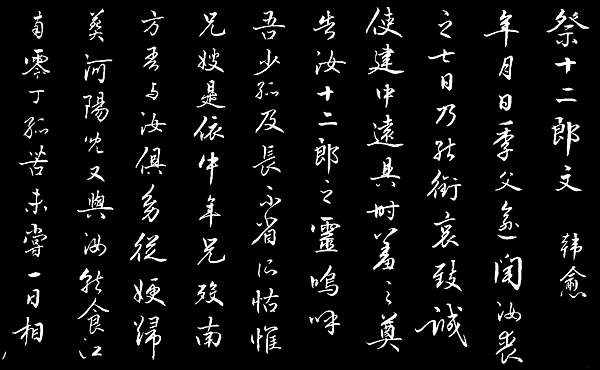 祭十二郎文 韩愈
年月日季父愈聞汝喪
之七日乃能銜哀致誠
使建中遠具時羞之奠
告汝十二郎之靈嗚呼
吾少孤及長不省所怙惟
兄嫂是依中年兄歿南
方吾与汝俱幼從嫂歸
葬河陽既又與汝就食江
南零丁孤苦未嘗一日相